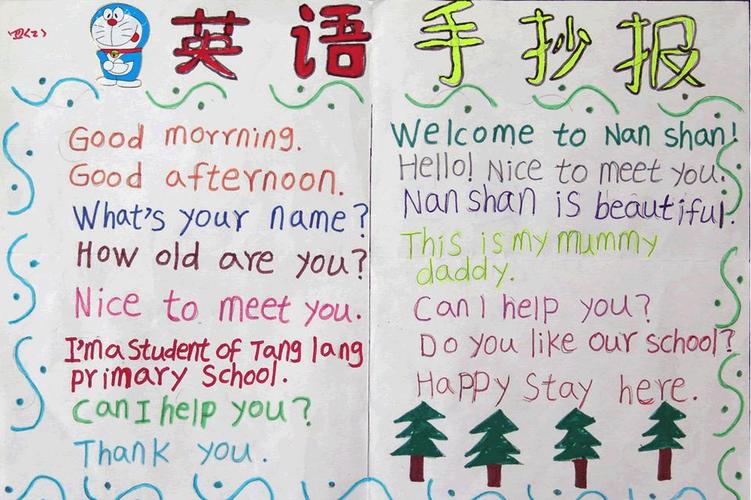 四(2)
英语手抄报
Good morrning.
Good afternoon.
What's your name?
How old are you?
Nice to meet you.
I'm a student of Tang lang
primary School.
Can I help you?
Thank you.
Welcome to Nan shan!
Hello! Nice to meet you.
Nan shan is beautiful.
This is my mummy
daddy.
Can I help you?
Do you like our school?
Happy Stay here.